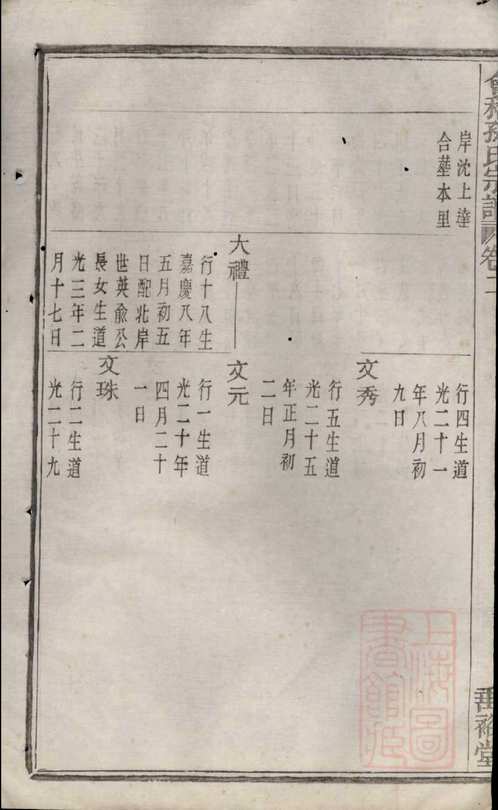 會稽孫氏宗譜 卷二
岸沈上達
合塟本里
行四生道
光二十一
年八月初
九日
文秀
行五生道
光二十五
年正月初
二日
大禮
行十八生
嘉慶八年
五月初五
日配北岸
世英俞公
長女生道
光三年二
月十七日
文元
行一生道
光二十年
四月二十
一日
文珠
行二生道
光二十九
垂裕堂
上海圖
書館藏